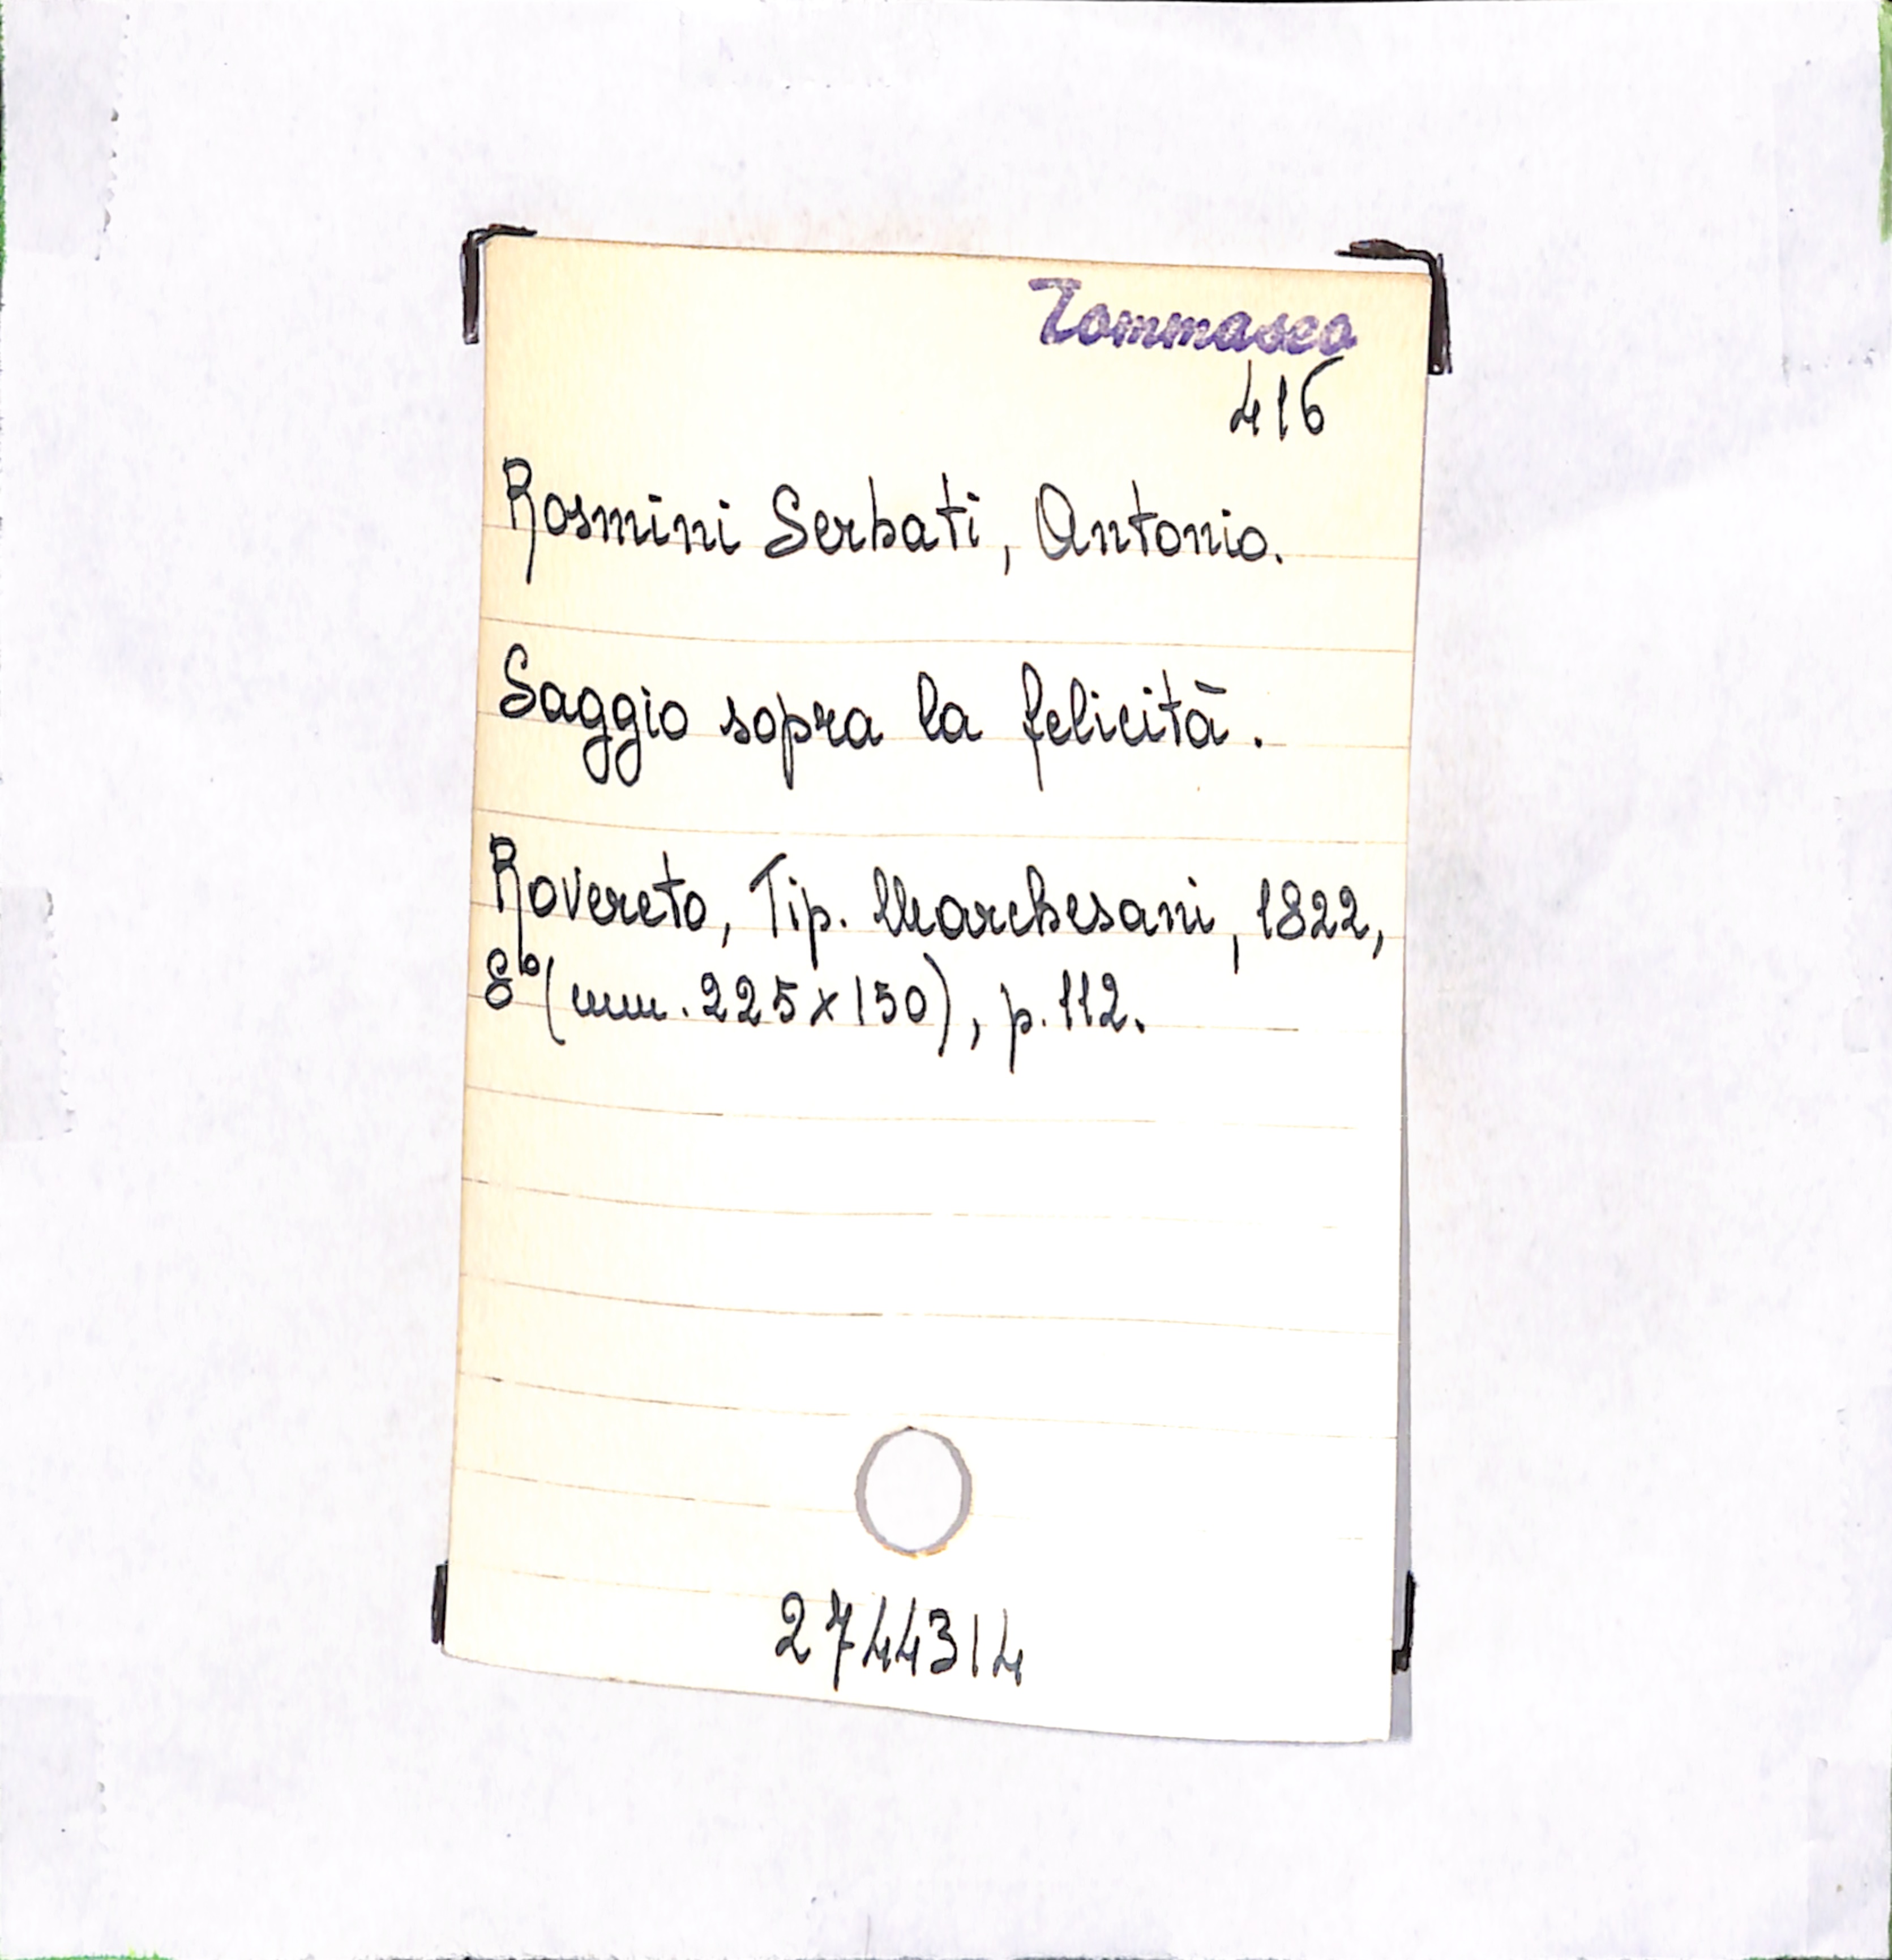 Tommaseo
416
Rosmini Serbati, Antonio.
Saggio sopra la felicità.
Rovereto, Tip. Marchesani, 1822,
8º (mm. 225x150), p. 112.
2744314